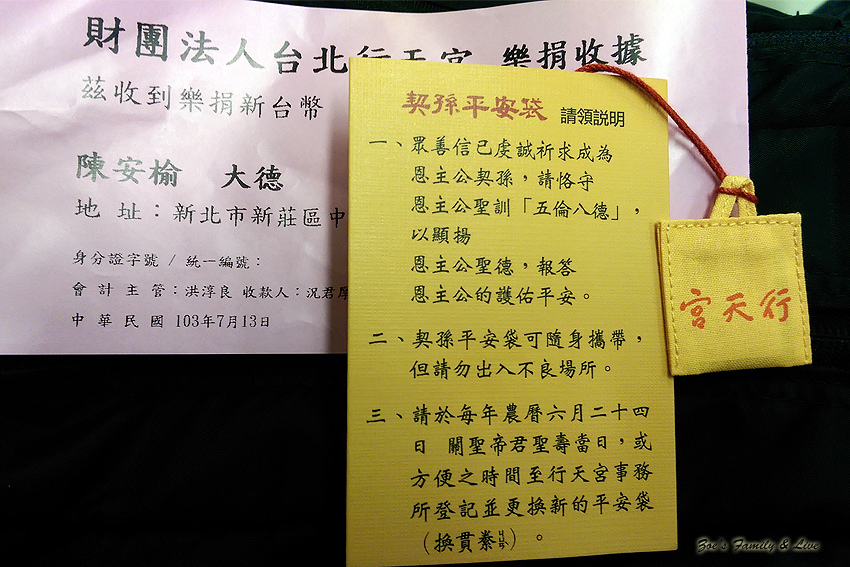 財團法人台北行天宮 樂捐收據
茲收到樂捐新台幣
陳安榆 大德
地 址：新北市新莊區中
身分證字號 / 統一編號：
會計主管：洪淳良 收款人：況君厚
中華民國 103年7月13日
契孫平安袋 請領説明
一、眾善信已虔誠祈求成為
恩主公契孫，請恪守
恩主公聖訓「五倫八德」，
以顯揚
恩主公聖德，報答
恩主公的護佑平安。
二、契孫平安袋可隨身攜帶，
但請勿出入不良場所。
三、請於每年農曆六月二十四
日 關聖帝君聖壽當日，或
方便之時間至行天宮事務
所登記並更換新的平安袋
（換貫綦ㄐㄩㄢˋ）。
宮天行
Zoe's Family & Live